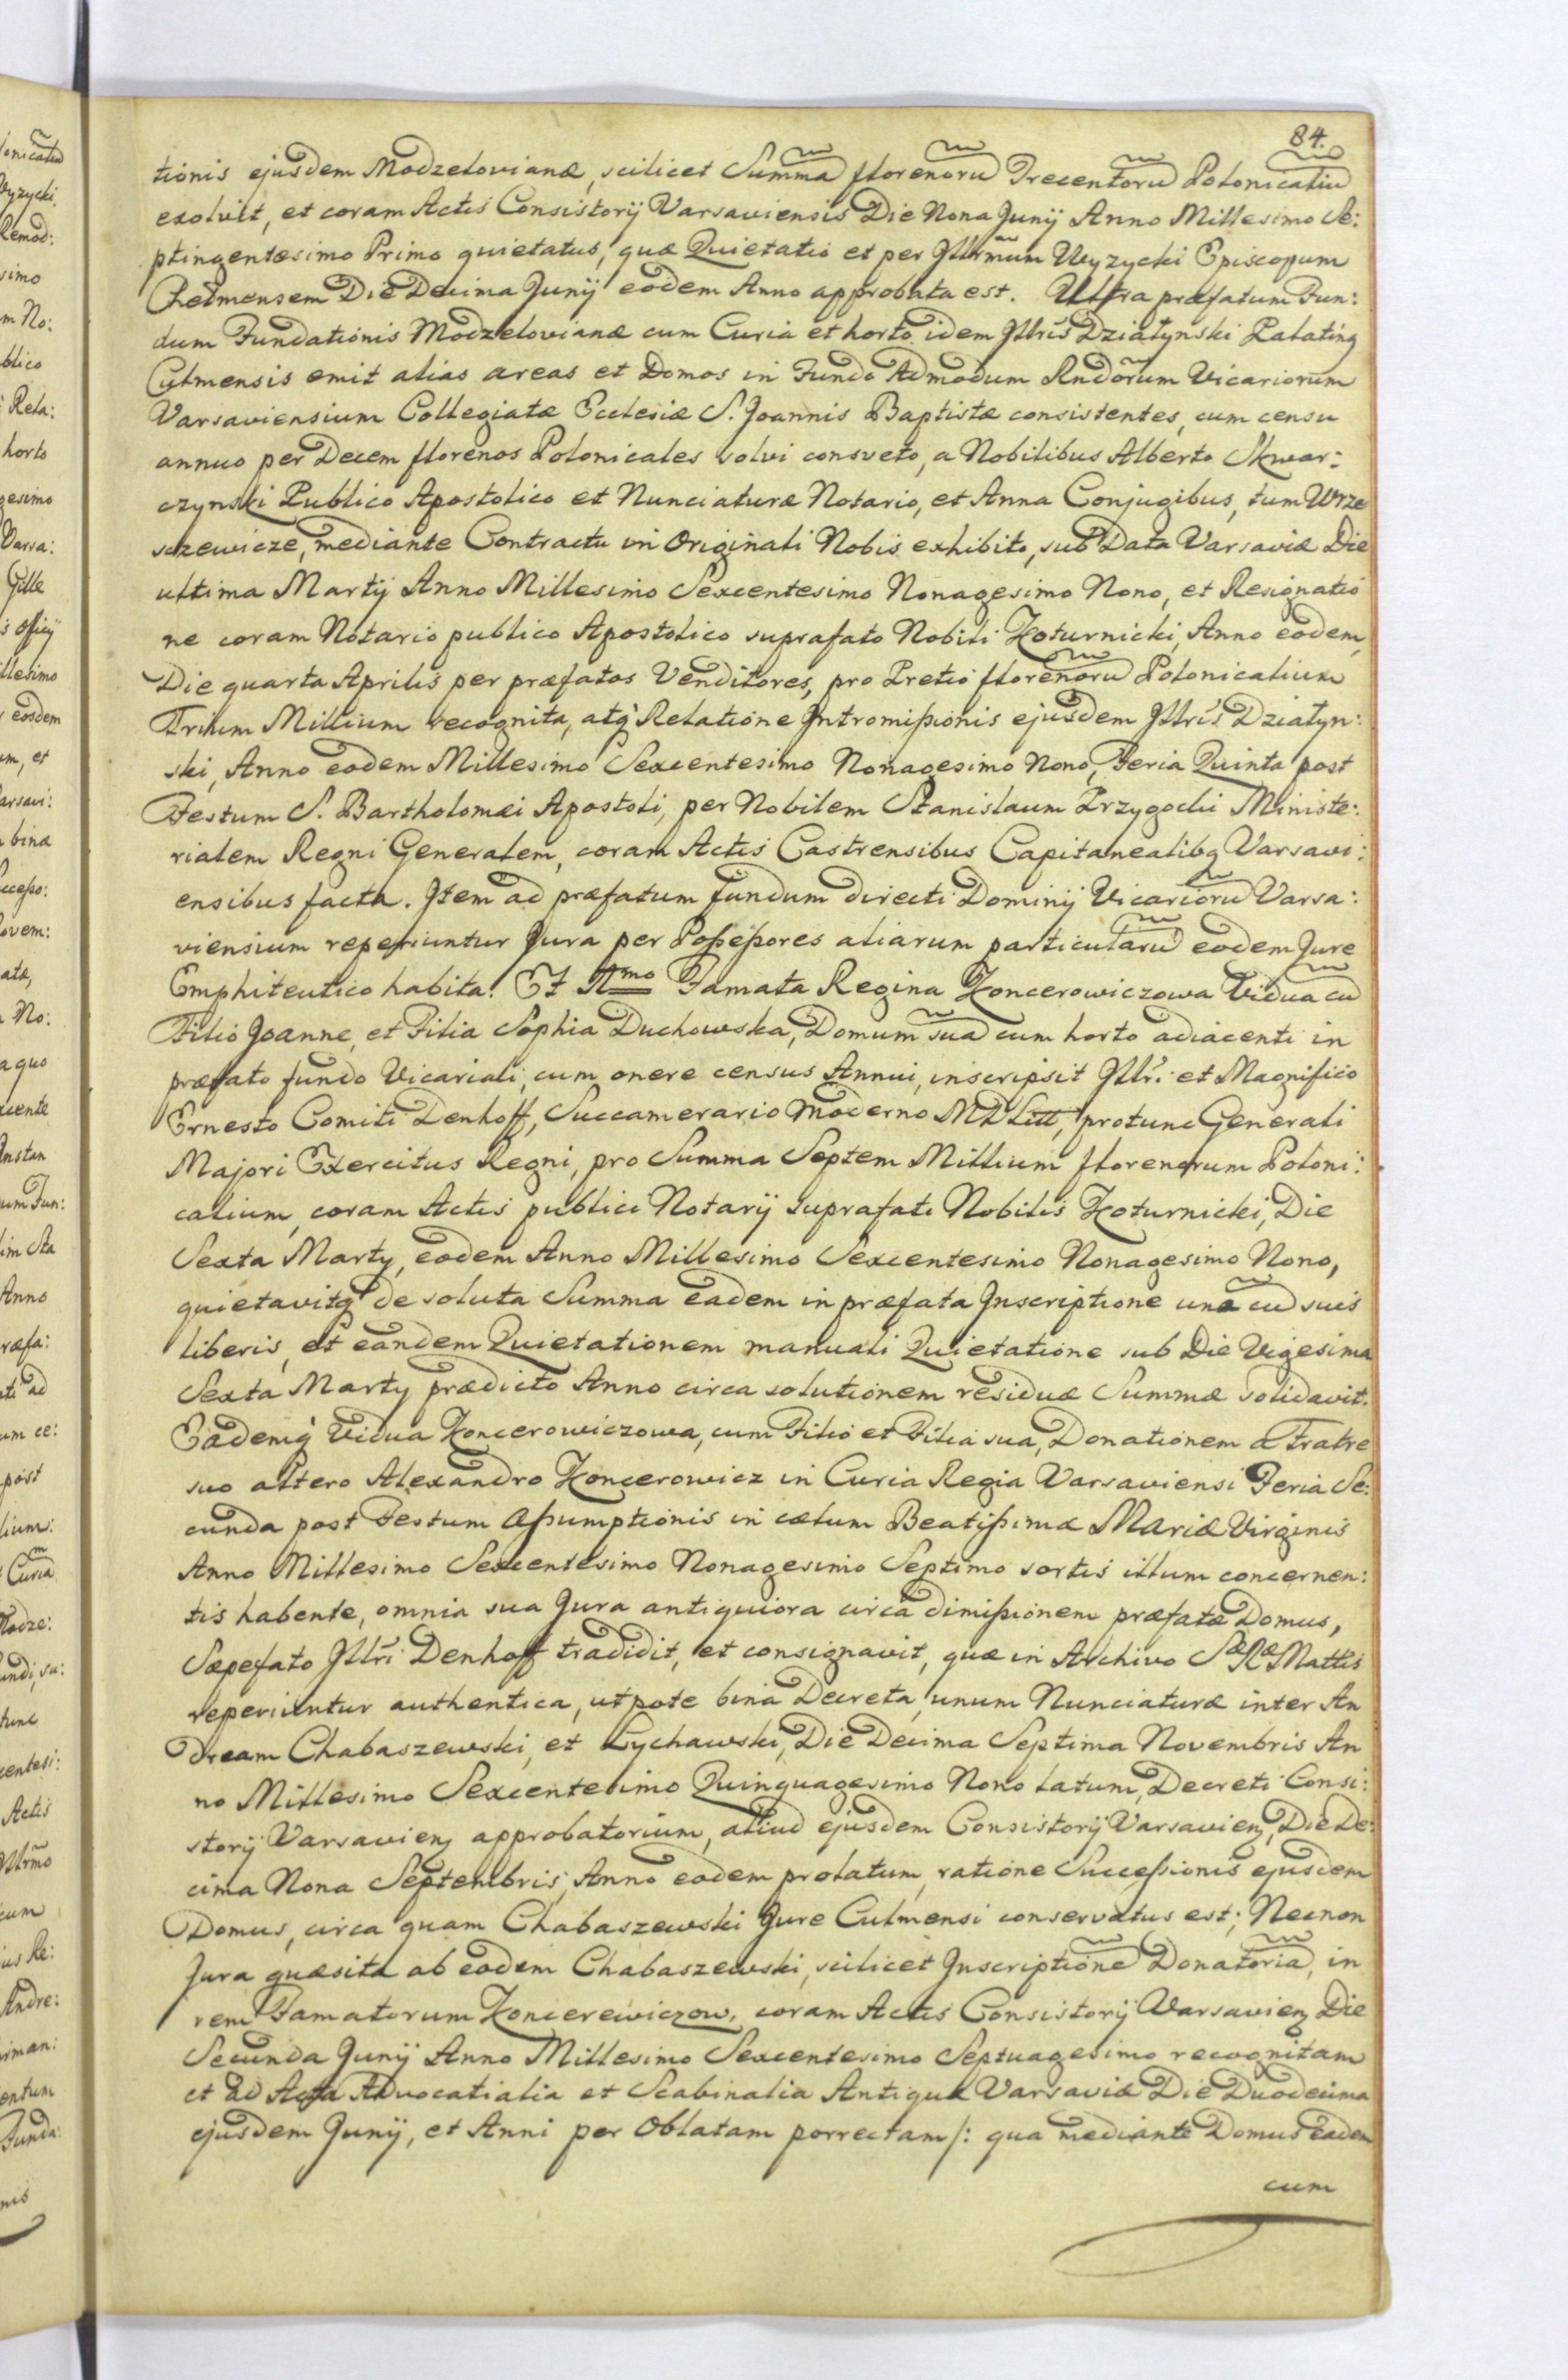 84.
tionis ejusdem Modzelovianæ, scilicet Sum̃ma florenorũ Trecentorũ Polonicaliũ
exolvit, et coram Actis Consistorÿ Varsaviensis Die Nona Junÿ Anno Millesimo Se:
ptingentæsimo Primo quietatus, quæ Quietatio et per Jllrm̃um Wyzycki Episcopum
Chełmensem Die Decima Junÿ eodem Anno approbata est. Ultra præfatum Fun:
dum Fundationis Modzelovianæ cum Curia et horto idem Jllris Działynski Palatinq
Culmensis emit alias areas et Domos in Fundo Admodum Rndõrum Vicariorum
Varsaviensium Collegiatæ Ecclesiæ S. Joannis Baptistæ consistentes, cum censu
annuo per Decem florenos Polonicales solvi consveto, a Nobilibus Alberto Skwar:
czynski Publico Apostolico et Nunciaturæ Notario, et Anna Conjugibus, tum Wrze
szewicze, mediante Contractu in Originali Nobis exhibito, sub Data Varsaviæ Die
ultima Martÿ Anno Millesimo Sexcentesimo Nonagesimo Nono, et Resignatio
ne coram Notario publico Apostolico suprafato Nobili Koturnicki, Anno eodem,
Die quarta Aprilis per præfatos Venditores, pro Pretio florenorũ Polonicalium
Trium Millium recognita, atq Relatione Jntromißionis ejusdem Jllris Działyn:
ski, Anno eodem Millesimo Sexcentesimo Nonagesimo Nono, Feria Quinta post
Festum S. Bartholomæi Apostoli, per Nobilem Stanislaum Przygocki Ministe:
rialem Regni Generalem, coram Actis Castrensibus Capitanealibq Varsavi:
ensibus facta. Jtem ad præfatum fundum directi Dominÿ Vicariorũ Varsa:
viensium reperiuntur Jura per Poßeßores aliarum particularũ eodem Jure
Emphiteutico habita. Et Jmo Famata Regina Koncerowiczowa Vidua cũ
Filio Joanne, et Filia Sophia Duchowska, Domum suã cum horto adiacenti in
præfato fundo Vicariali, cum onere census Annui, inscripsit Jllri et Magnifico
Ernesto Comiti Denhoff, Succamerario Moderno MDLitt, protunc Generali
Majori Exercitus Regni, pro Summa Septem Millium florenorum Poloni:
calium, coram Actis publici Notarÿ suprafati Nobilis Koturnicki, Die
Sexta Marty, eodem Anno Millesimo Sexcentesimo Nonagesimo Nono,
quietavitq de soluta Summa eadem in præfata Jnscriptione una cũ suis
liberis, et eandem Quietationem manuali Quietatione sub Die Vigesima
Sexta Marty prædicto Anno circa solutionem residuæ Summæ solidavit.
Eademq Vidua Koncerowiczowa, cum Filio et Filia sua, Donationem a Fratre
suo altero Alexandro Koncerowicz in Curia Regia Varsaviensi Feria Se:
cunda post Festum Aßumptionis in cælum Beatißimæ Mariæ Virginis
Anno Millesimo Sexcentesimo Nonagesimo Septimo sortis illum concernen:
tis habente, omnia sua Jura antiquiora circa dimißionem præfatæ Domus,
Sæpefato Jllri Denhoff tradidit, et consignavit, quæ in Archivo Sæ Ræ Mattis
reperiuntur authentica, utpote bina Decreta, unum Nunciaturæ inter An
dream Chabaszewski, et Lychawski, Die Decima Septima Novembris An
no Millesimo Sexcentesimo Quinquagesimo Nono latum, Decreti Consi:
storÿ Varsavienq approbatorium, aliud ejusdem Consistorÿ Varsavienq, Die De:
cima Nona Septembris, Anno eodem prolatum, ratione Succeßionis ejusdem
Domus, circa quam Chabaszewski Jure Culmensi conservatus est; Necnon
Jura quæsita ab eodem Chabaszewski, scilicet Jnscriptionẽ Donatoriã, in
rem Famatorum Koncerewiczow, coram Actis Consistorÿ Varsavienq Die
Secunda Junÿ Anno Millesimo Sexcentesimo Septuagesimo recognitam
et ad Acta Advocatialia et Scabinalia Antiquæ Varsaviæ Die Duodecima
ejusdem Junÿ, et Anni per Oblatam porrectam /: qua mediante Domus eadem
cum